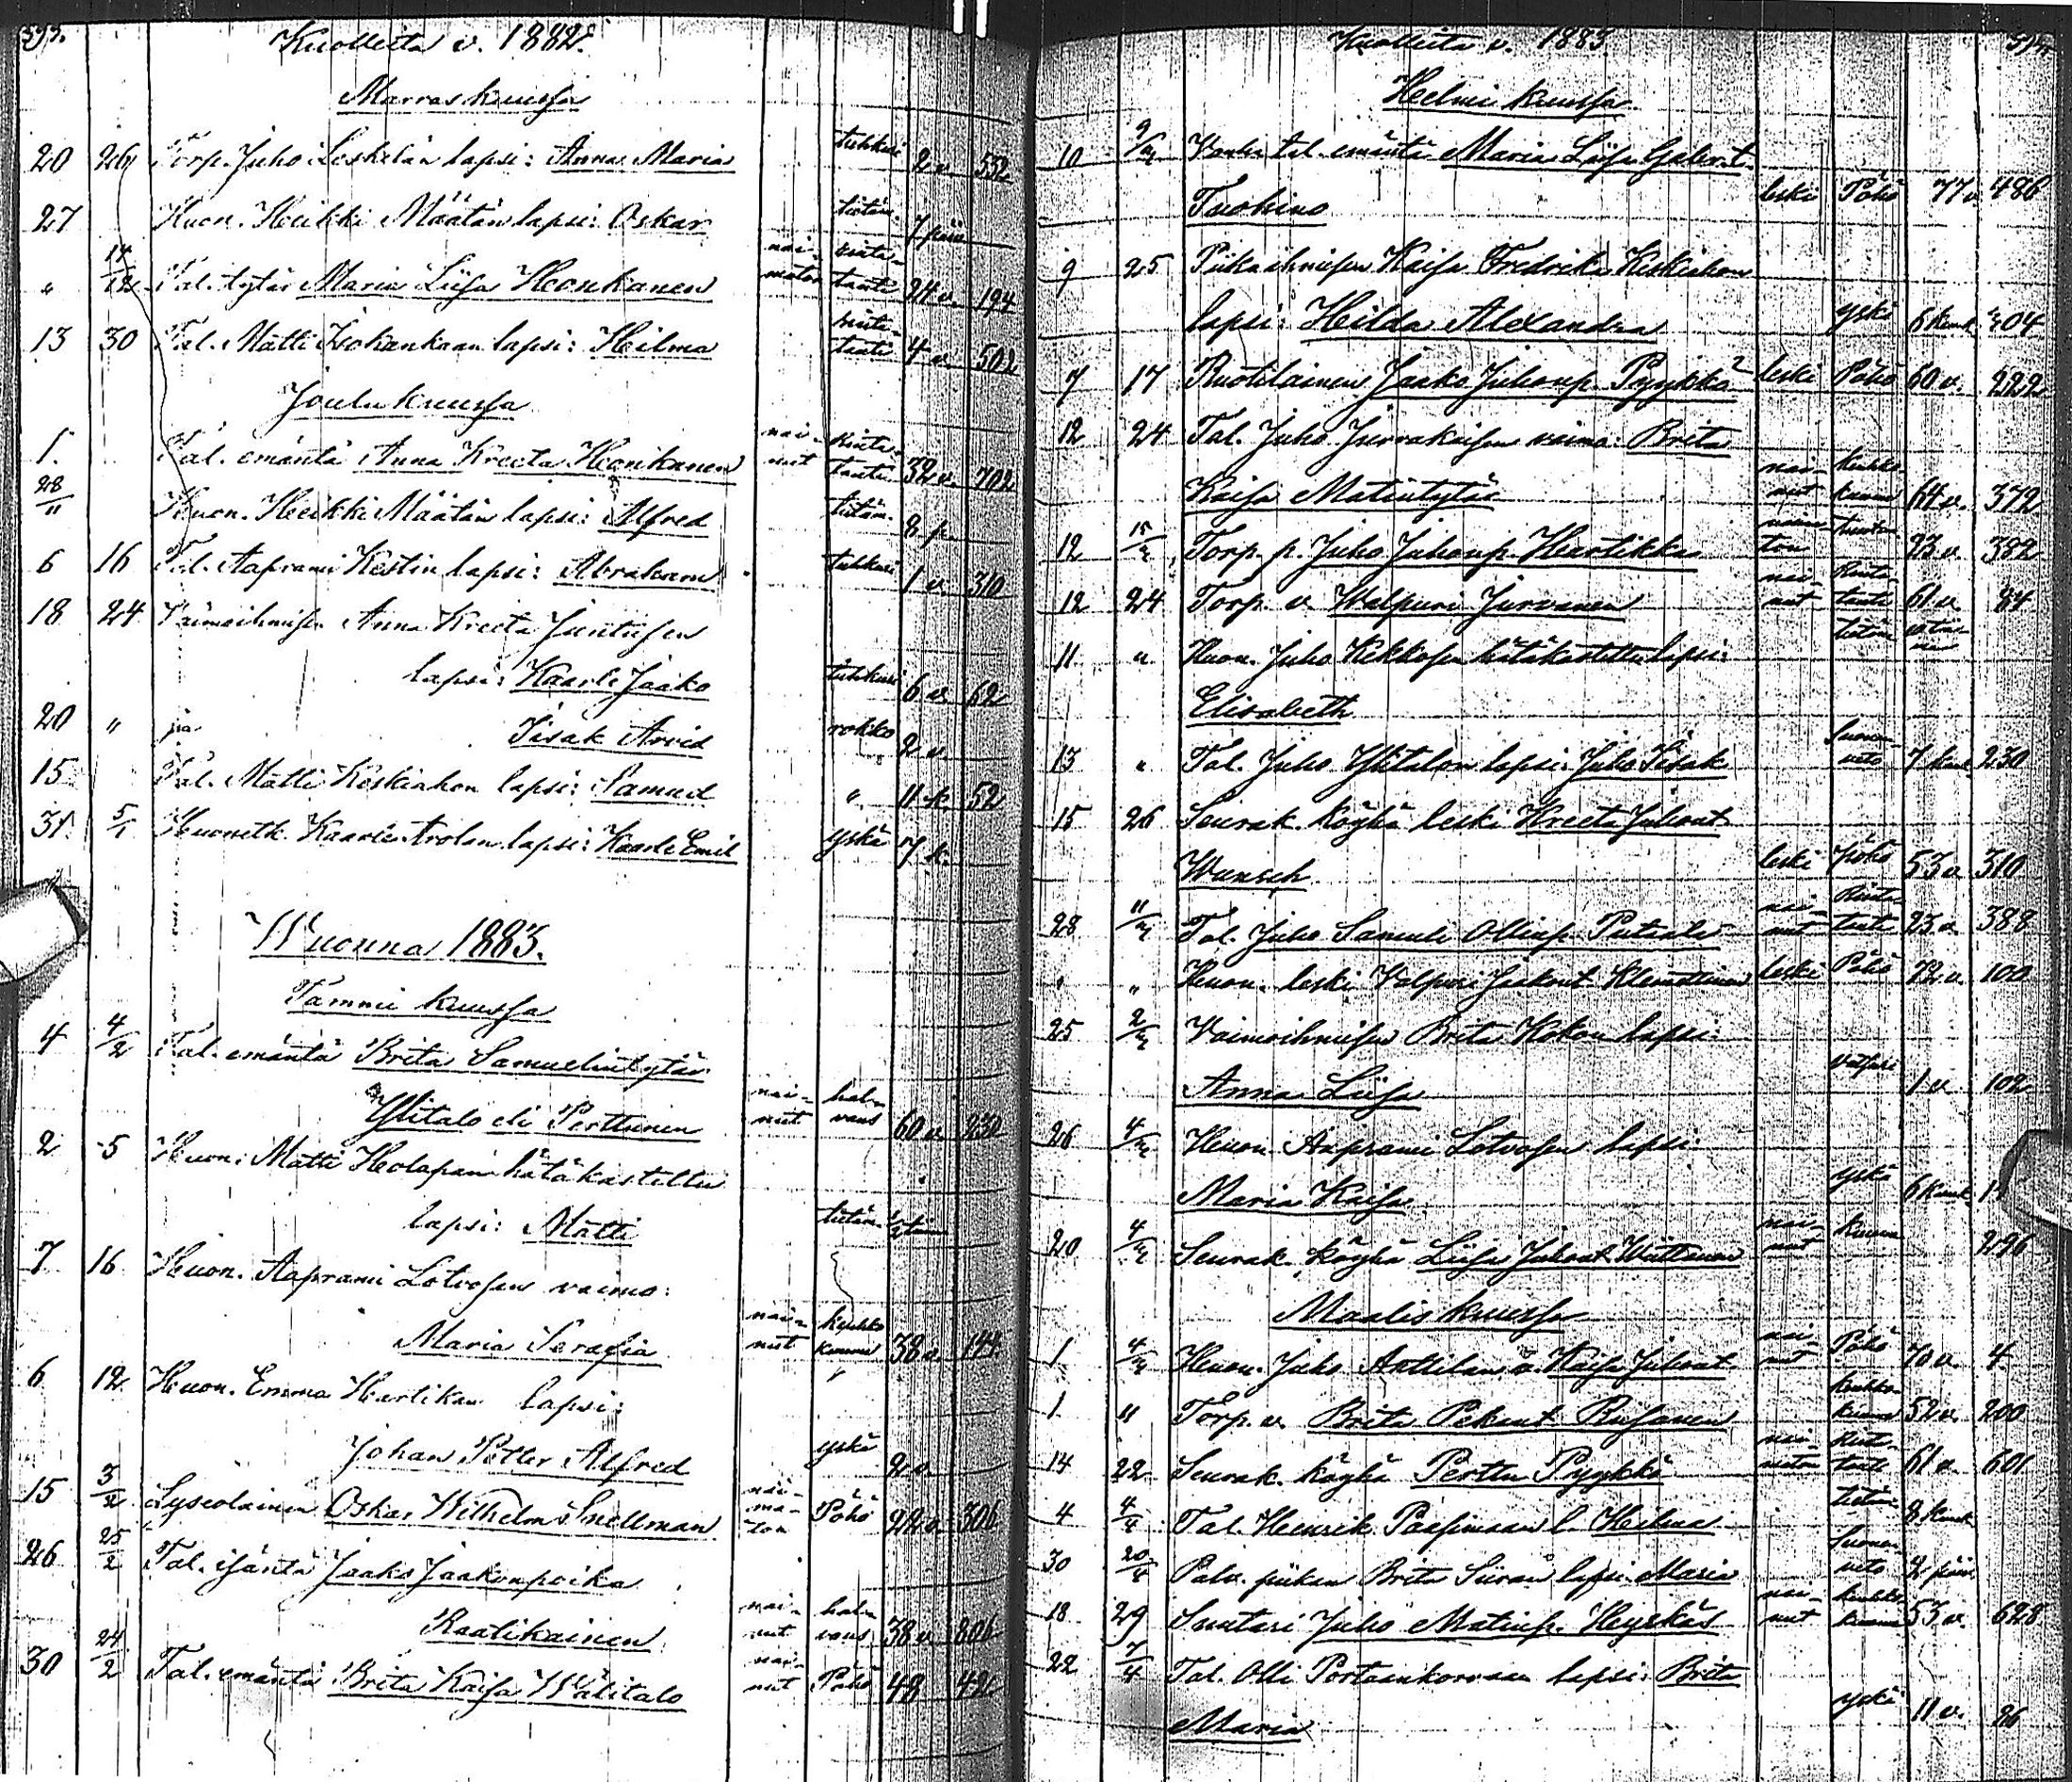 393.
Kuolleita v. 1882.
Marraskuussa
20 26 Torp. Juho Leskelän lapsi: Anna Maria tuhkuri 2 v. 552
27 Huon. Heikki Määtän lapsi: Oskar tietäm. 7 päiv
" 14/12 Tal. tytär Maria Liisa Honkanen nai-maton rinta-tauti 24 v. 194
13 30 Tal. Matti Isokankaan lapsi: Hilma rinta-tauti 4 v. 502
Joulukuussa
1. Tal. emäntä Anna Kreeta Heonikanen nai-nut rinta-tauti 32 v. 702
28/11 Huon. Heikki Määtän lapsi: Alfred tietäm. 8 p.
6 16 Tal. Aaprami Kestin lapsi: Abraham tuhkuri 1 v. 310
18 24 Vaimoihmisen Anna Kreeta Juntusen
lapsi: Kaarle Jaako tuhkuri 6 v. 62
20 " ja Iisak Arvid rokko 2 v.
15 " Tal. Matti Keskiahon lapsi: Samuel " 11 k. 52
31. 5/1 Huonetk. Kaarle Arolan lapsi: Kaarle Emil yskä 7 k.
Wuonna 1883.
Tammi kuussa
4 4/2 Tal. emäntä Brita Samuelintytär
Ylitalo eli Perttunen nai-nut hal-vaus 60 v. 230
2 5 Huon. Matti Holapan hätäkastettu
lapsi: Matti tietäm. 1/2
7 16 Huon. Aaprami Lotvosen vaimo:
Maria Serafia nai-nut keuhko kuume 38 v. 144
6 12 Huon. Emma Hartikan lapsi:
Johan Petter Alfred yskä 2 v.
15 3/2 Lyseolainen Oskar Wilhelm Snellman nai-ma-ton Pöhö 22 v. 306
26 25/2 Tal. isäntä Jaako Jaakonpoika
Raatikainen nai-nut hal-vaus 38 v. 806
30 24/2 Tal. emäntä Brita Kaisa Wälitalo nai-nut Pöhö 48 42
Kuolleita v. 1883
Helmi kuussa
10 Wanha tal. emäntä Maria Liisa Gabr.t.
Tuohino leski Pöhö 77 v. 486
9 25 Piikaihmisen Kaisa Fredrika Keskiahon
lapsi: Hilda Alexandra yskä 6 kuuk 204
7 17 Ruotilainen Jaako Juhonp. Pyykkö leski Pöhö 60 v. 222
12 24 Tal. Juho Jurvakaisen vaimo: Brita
Kaisa Matintytär nai-nut keuhko kuume 64 v. 372
12 Torp. p. Juho Juhonp. Hartikka naima-ton 23 v. 382
12 24 Torp. v. Walpuri Jurvanen nai-nut Rinta-tauti 61 v. 84
11 " Huon. Juho Kekkosen hätäkastettu lapsi: tietäm.
Elisabeth
13 " Tal. Juho Ylitalon lapsi: Juho Iisak suonen-veto 7 kuuk 230
15 26 Seurak. köyhä leski Kreeta Juhont.
Wunsch leski pöhö 53 v. 310
28 Tal. Juho Samuli Ollinp. Putula nai-nut Rinta-tauti 23 v. 388
" " Huon. leski Valpuri Jaakont. Klemettinen leski Pöhö 72 v. 100
25 Vaimoihmisen Brita Kokon lapsi:
Anna Liisa 1 v. 102
26 Huon. Aaprami Lotvosen lapsi:
Maria Kaisa yskä 6 kuuk
20 Seurak. köyhä Liisa Juhont. Wäättänen nai-nut kuume 296
Maalis kuussa
1 Huon. Juho Anttilan v. Kaisa Juhont. nai-nut Pöhö 70 v. 4
1 " Torp. v. Brita Pekant. Rusanen keuhko-kuume 52 v. 200
14 22 Seurak. köyhä Perttu Pyykkö nai-maton Rint-tauti 61 v. 601
4 4/4 Tal. Henrik Paasimaan l. Hilma tietäm. 8 kuuk
30 20/4 Palv. piikan Brita Siiran lapsi Maria suonen-veto 2 päiv
18 29 Suutari Juho Matinp. Heyskäs nai-nut keuhko kuume 53 v. 628
22 7/4 Tal. Olli Portaankorvan lapsi: Brita
Maria yskä 11 v. 26